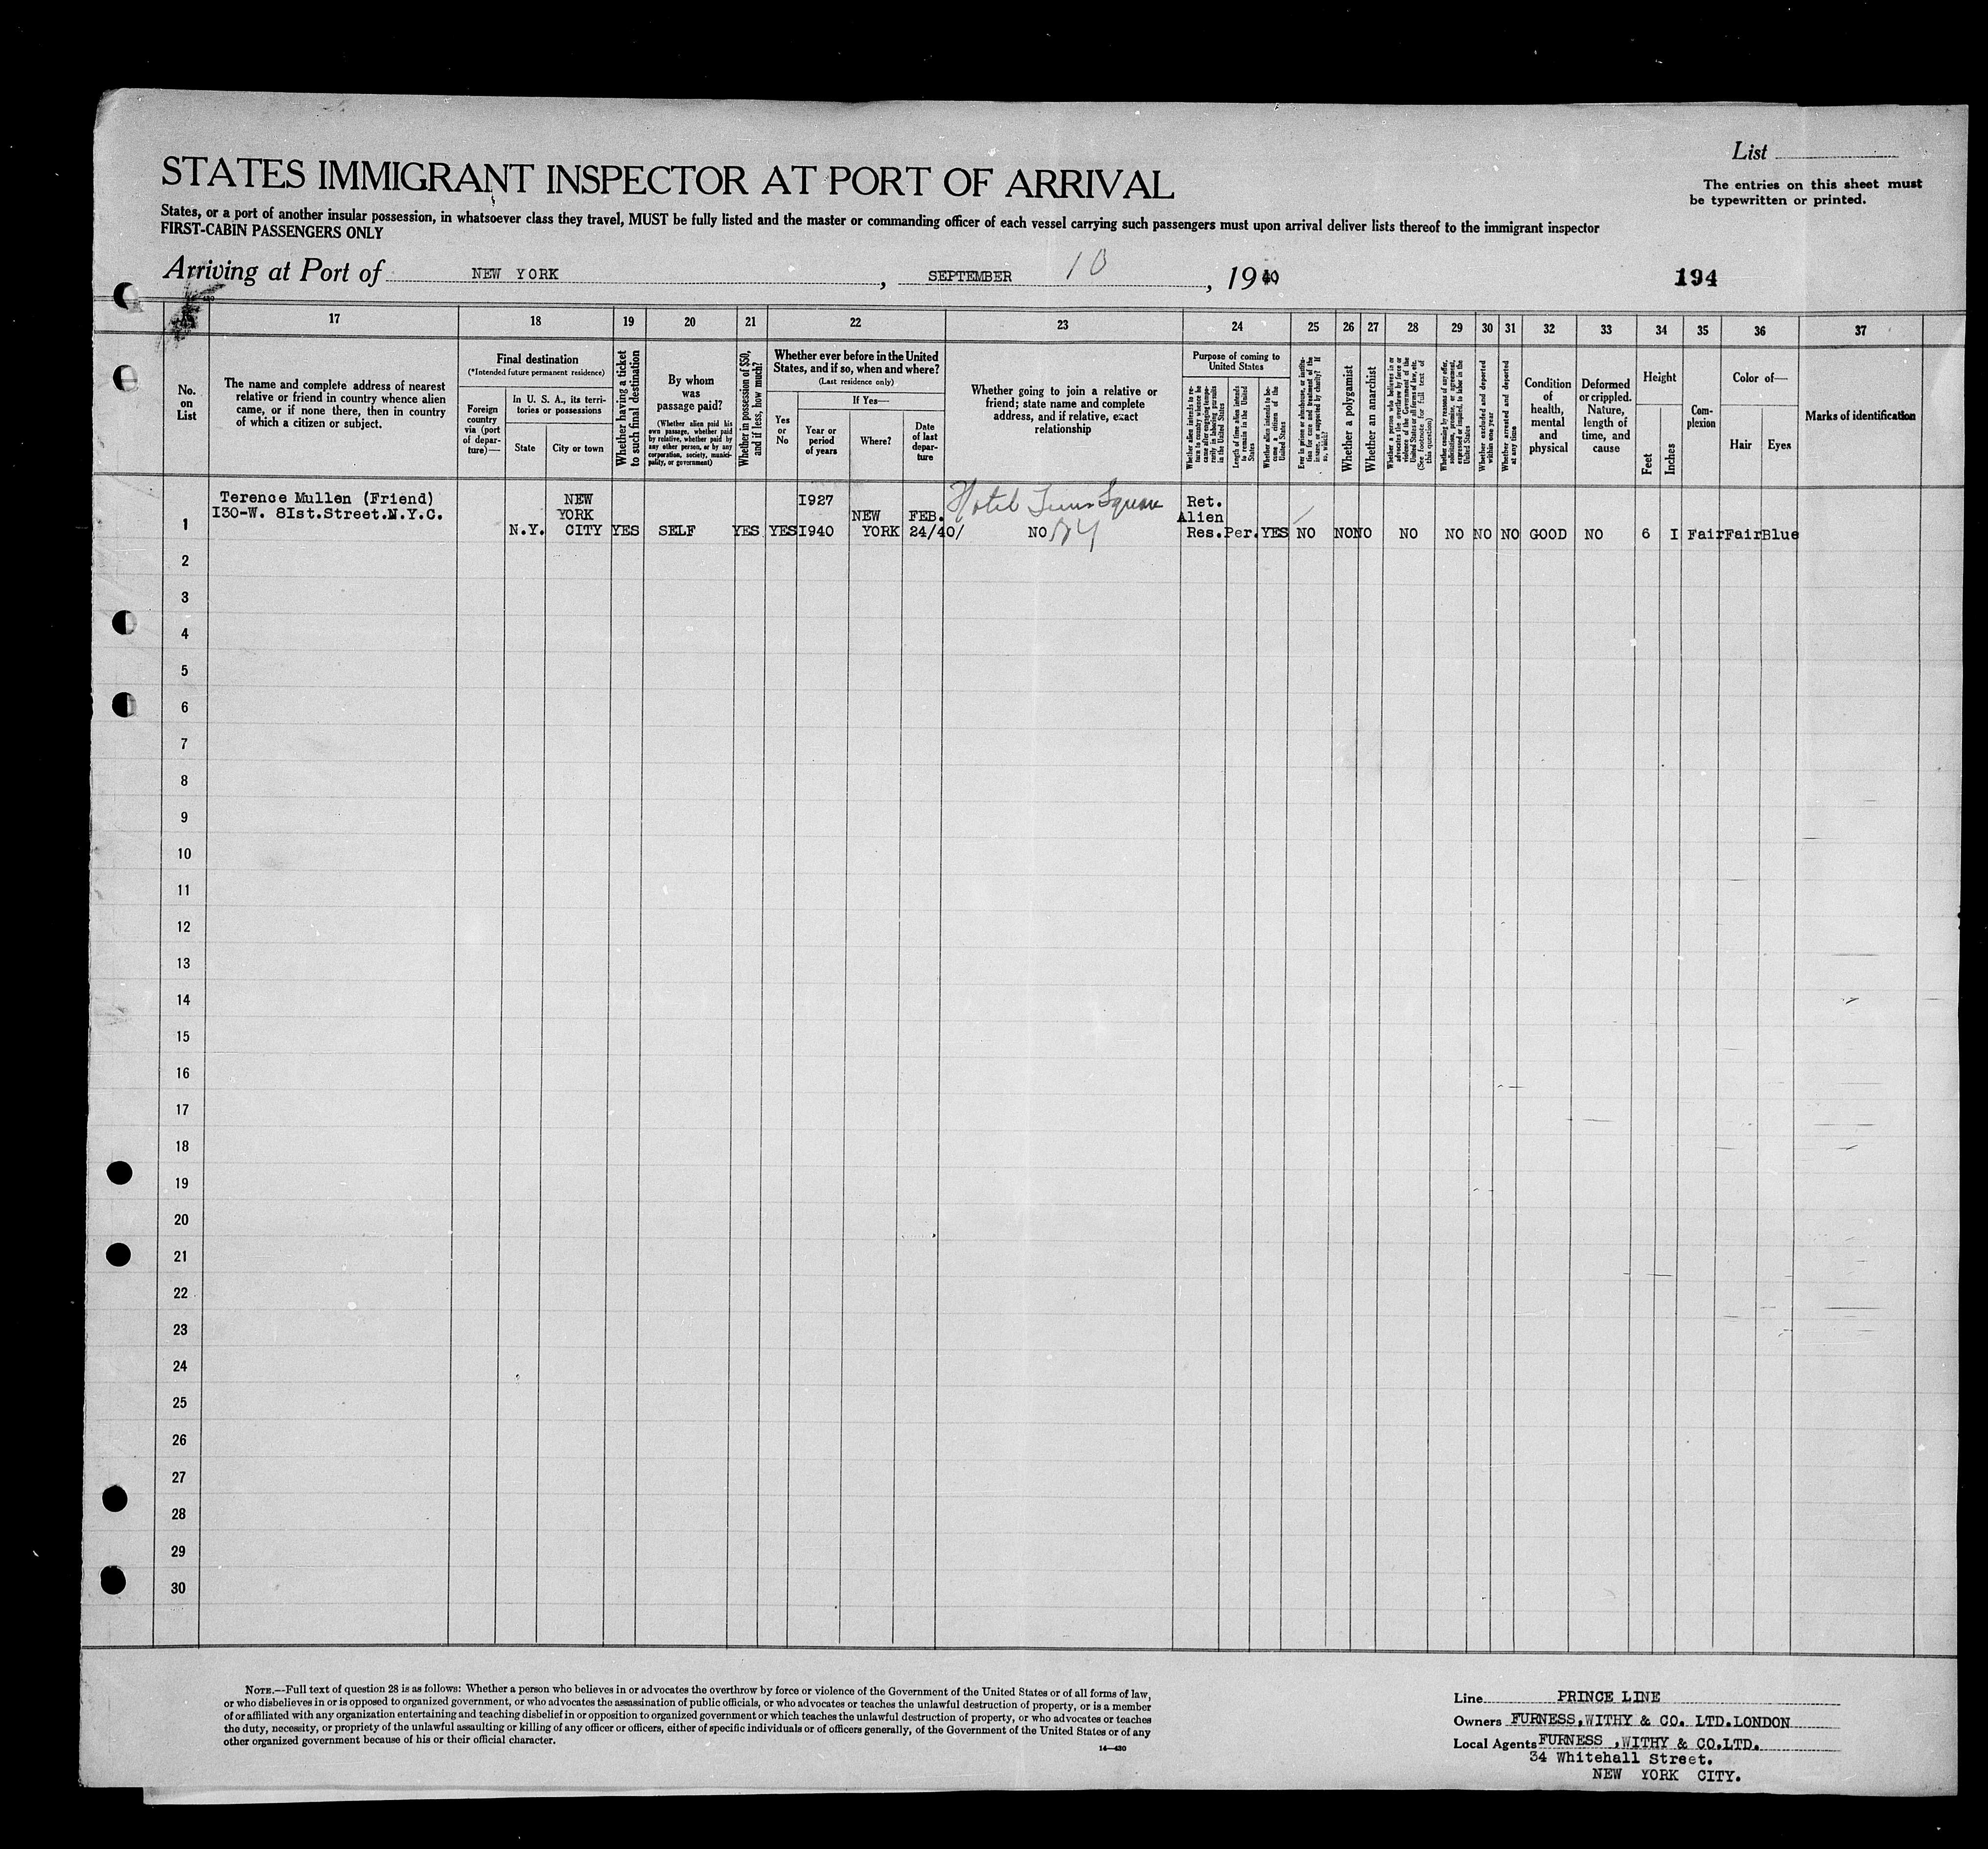 List
The entries on this sheet must
be typewritten or printed.
STATES IMMIGRANT INSPECTOR AT PORT OF ARRIVAL
States, or a port of another insular possession, in whatsoever class they travel, MUST be fully listed and the master or commanding officer of each vessel carrying such passengers must upon arrival deliver lists thereof to the immigrant inspector
FIRST-CABIN PASSENGERS ONLY
Arriving at Port of NEW YORK, SEPTEMBER 10, 1940
194
17 18 19 20 21 22 23 24 25 26 27 28 29 30 31 32 33 34 35 36 37
No.
on
List
The name and complete address of nearest
relative or friend in country whence alien
came, or if none there, then in country
of which a citizen or subject.
Final destination
(*Intended future permanent residence)
Foreign
country
via (port
of depar-
ture)—
In U. S. A., its terri-
tories or possessions
State
City or town
Whether having a ticket
to such final destination
By whom
was
passage paid?
(Whether alien paid his
own passage, whether paid
by relative, whether paid by
any other person, or by any
corporation, society, munici-
pality, or government)
Whether in possession of $50,
and if less, how much?
Whether ever before in the United
States, and if so, when and where?
(Last residence only)
Yes
or
No
If Yes—
Year or
period
of years
Where?
Date
of last
depar-
ture
Whether going to join a relative or
friend; state name and complete
address, and if relative, exact
relationship
Purpose of coming to
United States
Whether alien intends to re-
turn to country whence he
came after engaging tempo-
rarily in laboring pursuits
in the United States
Length of time alien intends
to remain in the United
States
Whether alien intends to be-
come a citizen of the
United States
Ever in prison or almshouse, or institu-
tion for care and treatment of the
insane, or supported by charity? If
so, which?
Whether a polygamist
Whether an anarchist
Whether a person who believes in or
advocates the overthrow by force or
violence of the Government of the
United States or all forms of law, etc.
(See footnote for full text of
this question)
Whether coming by reason of any offer,
solicitation, promise, or agreement,
expressed or implied, to labor in the
United States
Whether excluded and deported
within one year
Whether arrested and deported
at any time
Condition
of
health,
mental
and
physical
Deformed
or crippled.
Nature,
length of
time, and
cause
Height
Feet
Inches
Com-
plexion
Color of—
Hair
Eyes
Marks of identification
Terence Mullen (Friend)
I30-W. 8Ist.Street.N.Y.C.
1 N.Y. NEW
YORK
CITY YES SELF YES YES I927
I940 NEW
YORK FEB.
24/40/ Hotel Times Square
NO NY Ret.
Alien
Res. Per. YES NO NO NO NO NO NO NO GOOD NO 6 I Fair Fair Blue
2
3
4
5
6
7
8
9
10
11
12
13
14
15
16
17
18
19
20
21
22
23
24
25
26
27
28
29
30
NOTE.—Full text of question 28 is as follows: Whether a person who believes in or advocates the overthrow by force or violence of the Government of the United States or of all forms of law,
or who disbelieves in or is opposed to organized government, or who advocates the assassination of public officials, or who advocates or teaches the unlawful destruction of property, or is a member
of or affiliated with any organization entertaining and teaching disbelief in or opposition to organized government or which teaches the unlawful destruction of property, or who advocates or teaches
the duty, necessity, or propriety of the unlawful assaulting or killing of any officer or officers, either of specific individuals or of officers generally, of the Government of the United States or of any
other organized government because of his or their official character.
14—430
Line PRINCE LINE
Owners FURNESS,WITHY & CO. LTD.LONDON
Local Agents FURNESS ,WITHY & CO.LTD.
34 Whitehall Street.
NEW YORK CITY.